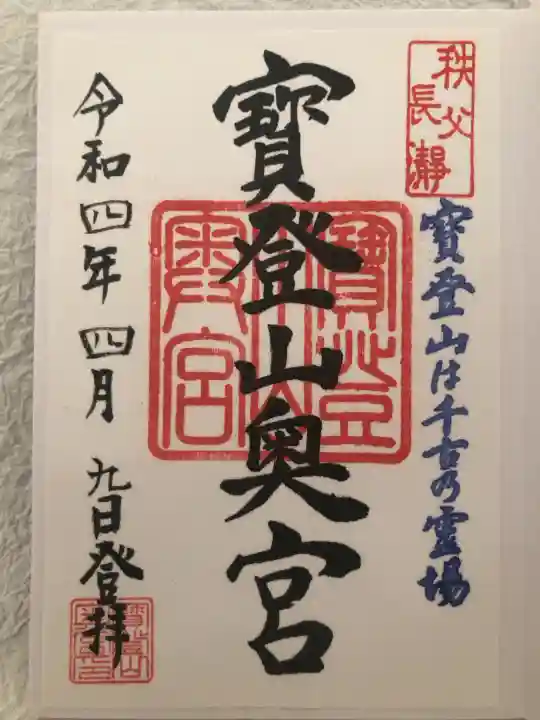 秩父
長瀞
寶登山は千古乃霊場
寶登山奥宮
寶登山
奥宮
令和四年四月九日登拝